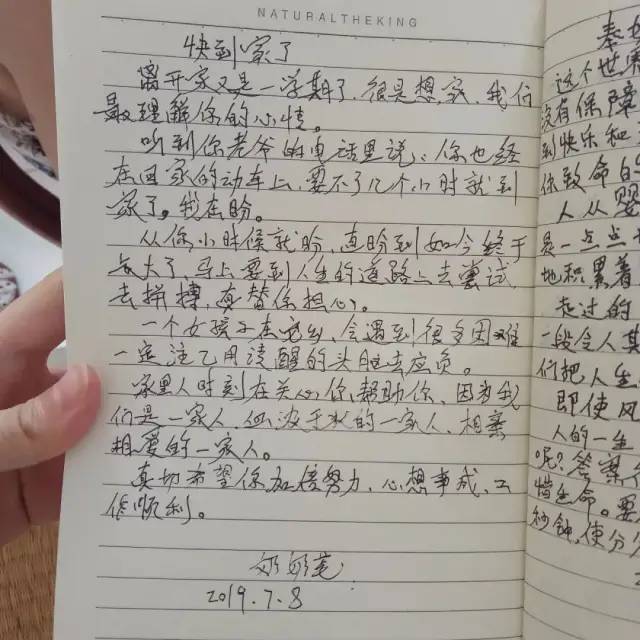 NATURALTHEKING
快到家了
离开家又是一学期了，很是想家，我们
最理解你的心情。
听到你老爷的电话里说：你也经
在回家的动车上，要不了几个小时就到
家了。我在盼。
从你小时候就盼，直盼到如今终于
长大了，马上要到人生的道路上去尝试
去拼搏，真替你担心。
一个女孩子在 ，会遇到很多困难
一定注乙用清醒的头脑去应负。
家里人时刻在关心你，帮助你，因为我
们是一家人，血浓于水的一家人，相亲
相爱的一家人。
真切希望你加倍努力，心想事成，工
作顺利。
奶奶
2019.7.8
这个世
没有保障
到快乐和
你致命的
人从婴
是一点点
地积累着
走过的
一段令人
们把人生
即使风
人的一生
呢？答案
惜生命。要
秒钟，使分